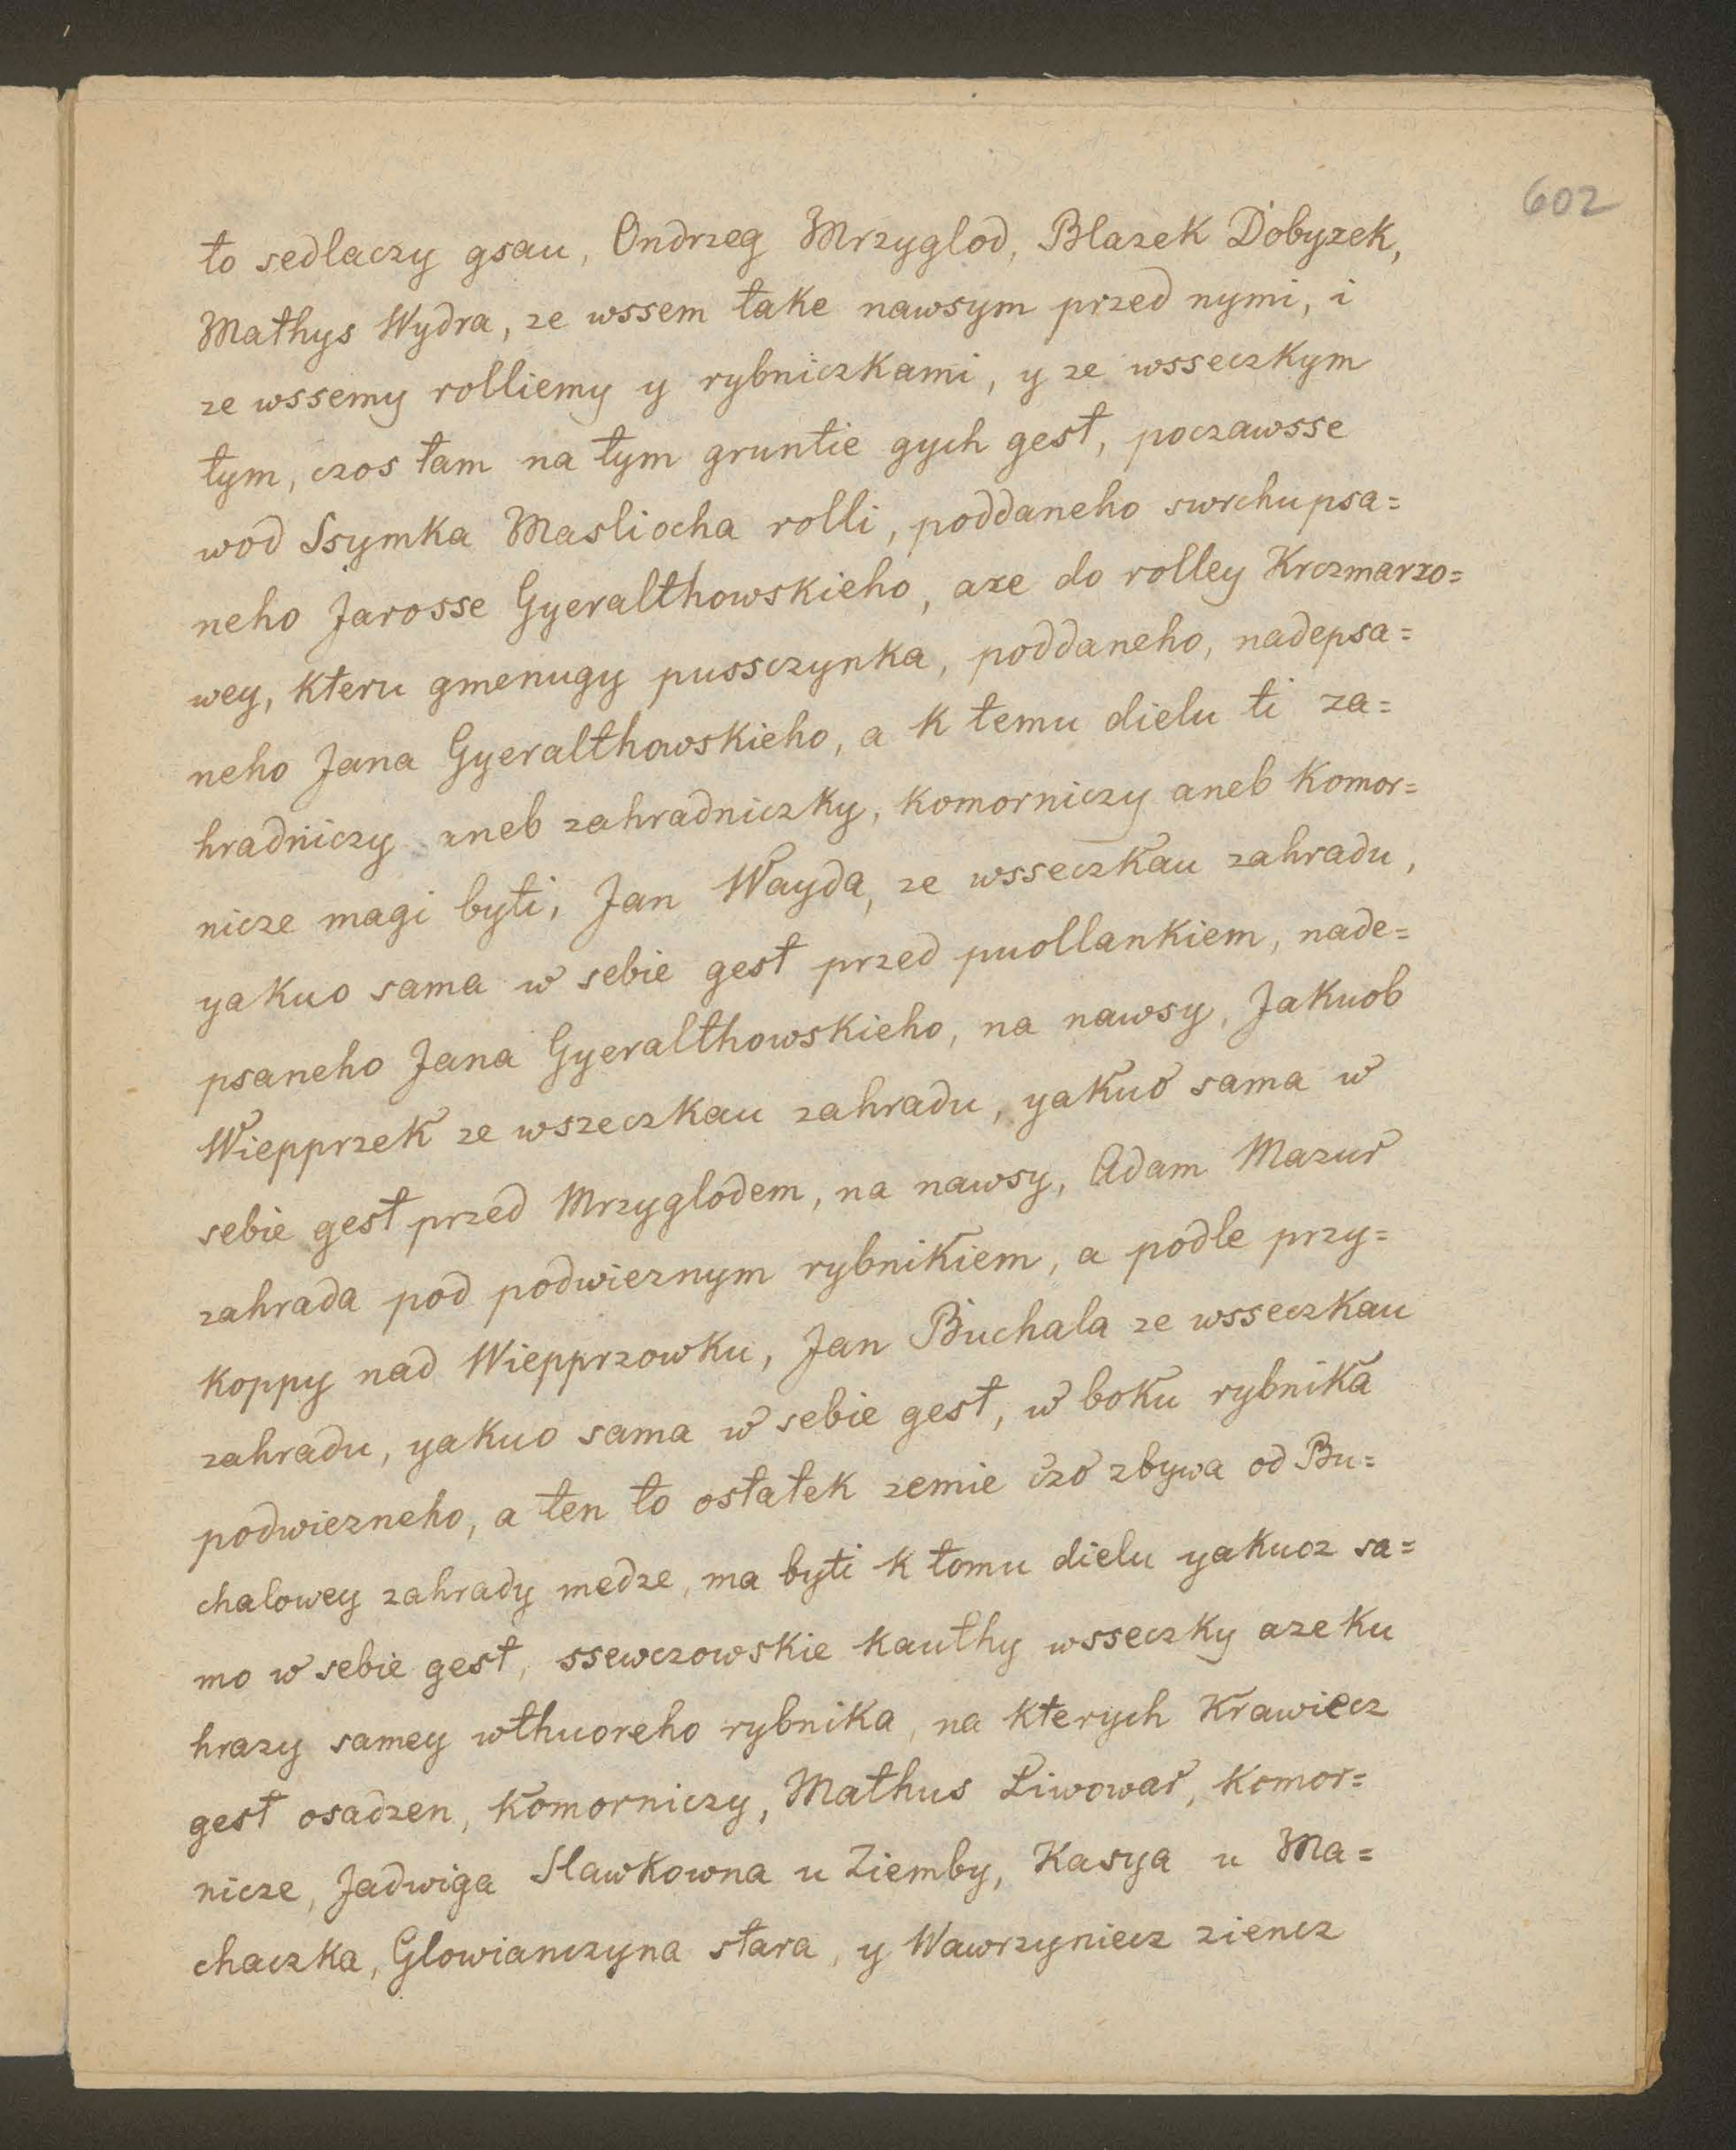 602
to sedlaczy gsau, Ondrzeg Mrzyglod, Blazek Dobyzek,
Mathys Wydra, ze wssem take nawsym przed nymi, i
ze wssemy rolliemy y rybniczkami, y ze wsseczkym
tym, czos tam na tym gruntie gych gest, poczawsse
wod Ssymka Masliocha rolli, poddaneho swrchupsa=
neho Jarosse Gyeralthowskieho, aze do rolley Krczmarzo=
wey, kteru gmenugy pussczynka, poddaneho, nadepsa=
neho Jana Gyeralthowskieho, a k temu dielu ti za=
hradniczy aneb zahradniczky, komorniczy aneb komor=
nicze magi byti, Jan Wayda, ze wsseczkau zahradu,
yakuo sama w sebie gest przed puollankiem, nade=
psaneho Jana Gyeralthowskieho, na nawsy, Jakuob
Wiepprzek ze wszeczkau zahradu, yakuo sama w
sebie gest przed Mrzyglodem, na nawsy, Adam Mazur
zahrada pod podwieznym rybnikiem, a podle przy=
koppy nad Wiepprzowku, Jan Buchala ze wsseczkau
zahradu, yakuo sama w sebie gest, w boku rybnika
podwiezneho, a ten to ostatek zemie czo zbywa od Bu=
chalowey zahrady medze, ma byti k tomu dielu yakucz sa=
mo w sebie gest, ssewczowskie kauthy wsseczky aze ku
hrazy samey wthuoreho rybnika, na kterych Krawiecz
gest osadzen, komorniczy, Mathus Liwowar, komor=
nicze, Jadwiga Slawkowna u Ziemby, Kasya u Ma=
chaczka, Glowianczyna stara, y Wawrzyniecz ziencz